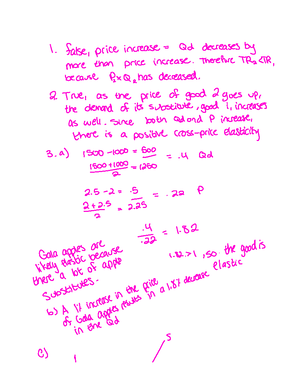 1. False, price increase = Qd decreases by
more than price increase. Therefore TR2<TR1
because P2xQ2 has decreased.
2. True, as the price of good 2 goes up,
the demand of its substitute, good 1, increases
as well. Since both Qd and P increase,
there is a positive cross-price elasticity
3. a) 1500-1000 = 500
1500+1000 = 1250 = .4 Qd
2
2.5-2 = .5
2+2.5 = 2.25 = .22 P
2
.4
.22 = 1.82
Gala apples are
likely elastic because
there a lot of apple
substitutes.
1.82>1, so the good is
elastic
b) A 1% increase in the price
of Gala apples results in a 1.8% decrease
in the Qd
c)
1
S